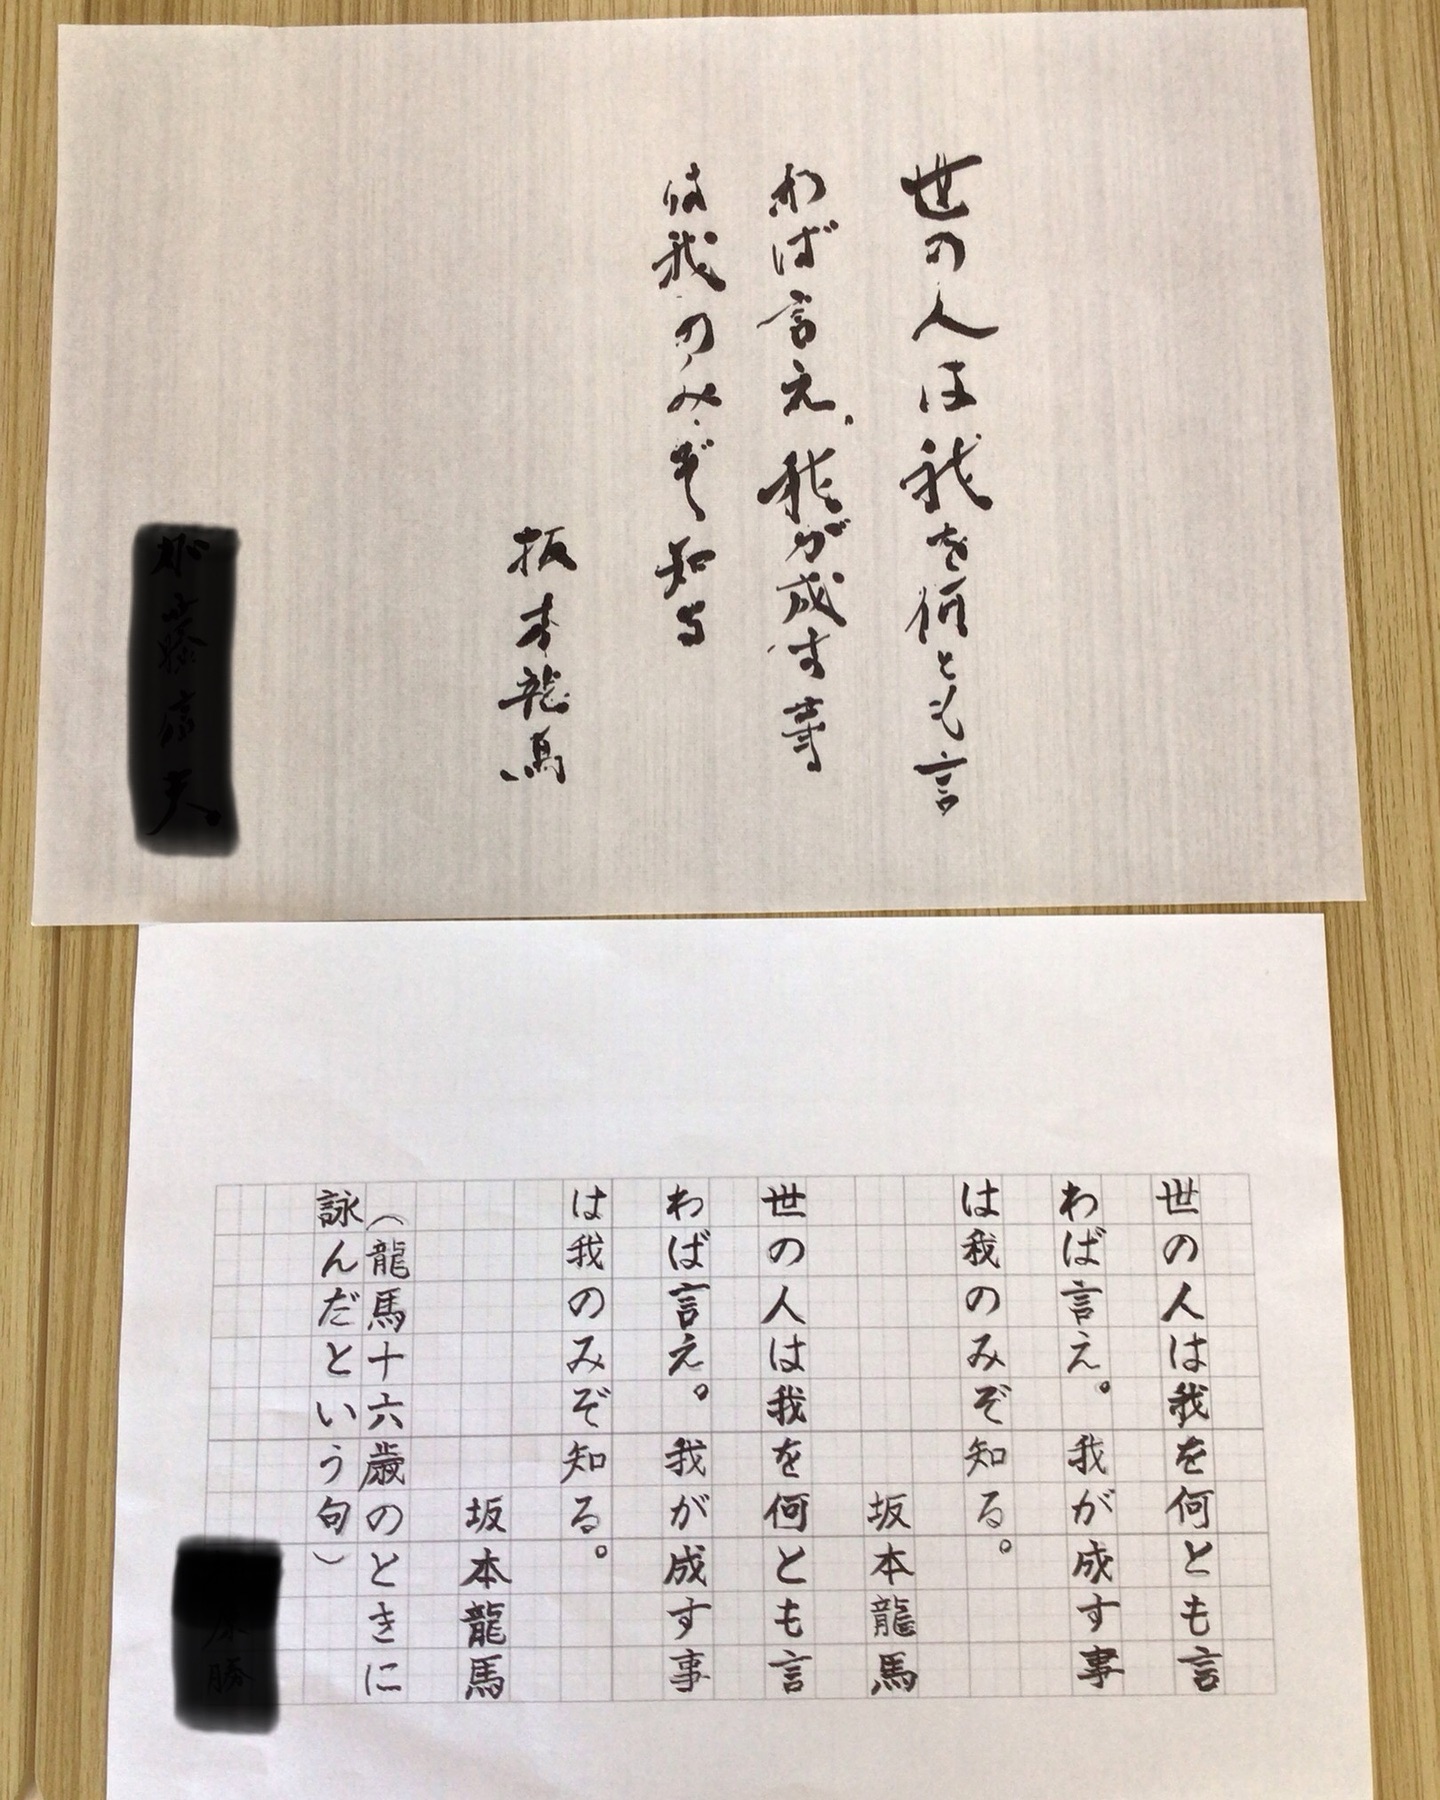 世の人は我を何とも言
わば言え。我が成す事
は我のみぞ知る
坂本龍馬
世の人は我を何とも言
わば言え。我が成す事
は我のみぞ知る。
坂本龍馬
世の人は我を何とも言
わば言え。我が成す事
は我のみぞ知る。
坂本龍馬
（龍馬十六歳のときに
詠んだという句）